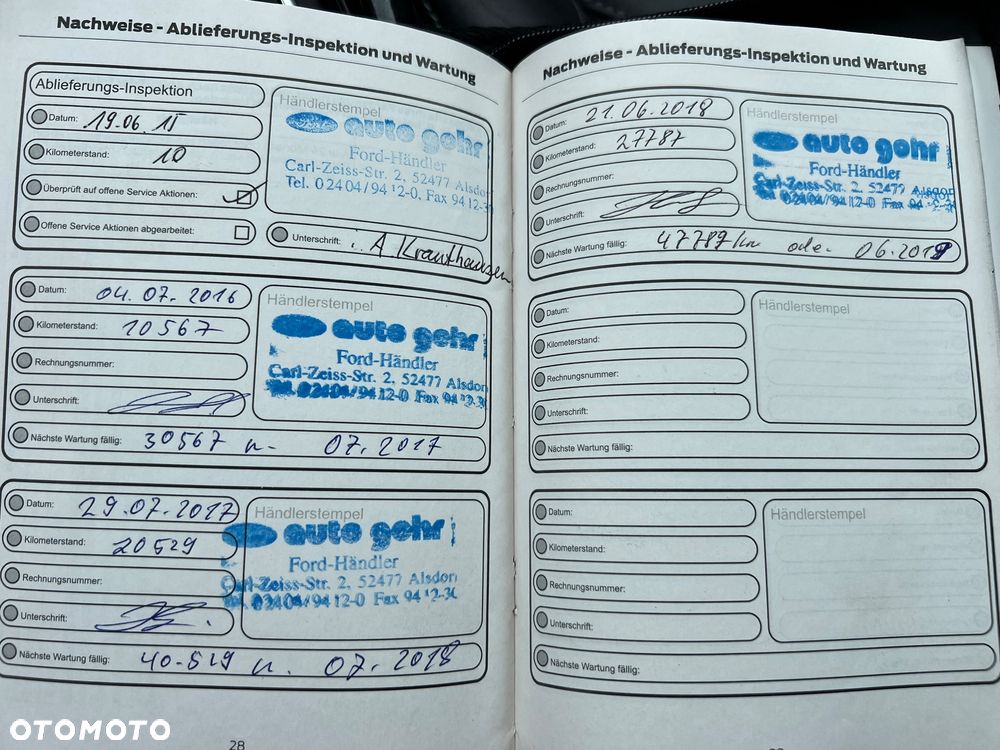 Nachweise - Ablieferungs-Inspektion und Wartung
Ablieferungs-Inspektion
Datum: 19.06.15
Kilometerstand: 10
Überprüft auf offene Service Aktionen:
Offene Service Aktionen abgearbeitet:
Händlerstempel
Ford auto gehr
Ford-Händler
Carl-Zeiss-Str. 2, 52477 Alsdor
Tel. 02404/94 12-0, Fax 94 12-3
Unterschrift: i.A Krauthausen
Datum: 04.07.2016
Kilometerstand: 10567
Rechnungsnummer:
Unterschrift:
Händlerstempel
auto gehr
Ford-Händler
Carl-Zeiss-Str. 2, 52477 Alsdor
Tel. 02404/94 12-0 Fax 94 12-30
Nächste Wartung fällig: 30567 u- 07.2017
Datum: 29.07.2017
Kilometerstand: 20529
Rechnungsnummer:
Unterschrift:
Händlerstempel
auto gehr
Ford-Händler
Carl-Zeiss-Str. 2, 52477 Alsdor
Tel. 02404/94 12-0 Fax 94 12-30
Nächste Wartung fällig: 40-529 u. 07.2018
28
Nachweise - Ablieferungs-Inspektion und Wartung
Datum: 21.06.2018
Kilometerstand: 27787
Rechnungsnummer:
Unterschrift:
Händlerstempel
auto gehr
Ford-Händler
Carl-Zeiss-Str. 2, 52477 Alsdor
Tel. 02404/94 12-0 Fax 94
Nächste Wartung fällig: 47787km oder 06.2019
Datum:
Kilometerstand:
Rechnungsnummer:
Unterschrift:
Händlerstempel
Nächste Wartung fällig:
Datum:
Kilometerstand:
Rechnungsnummer:
Unterschrift:
Händlerstempel
Nächste Wartung fällig:
OTOMOTO